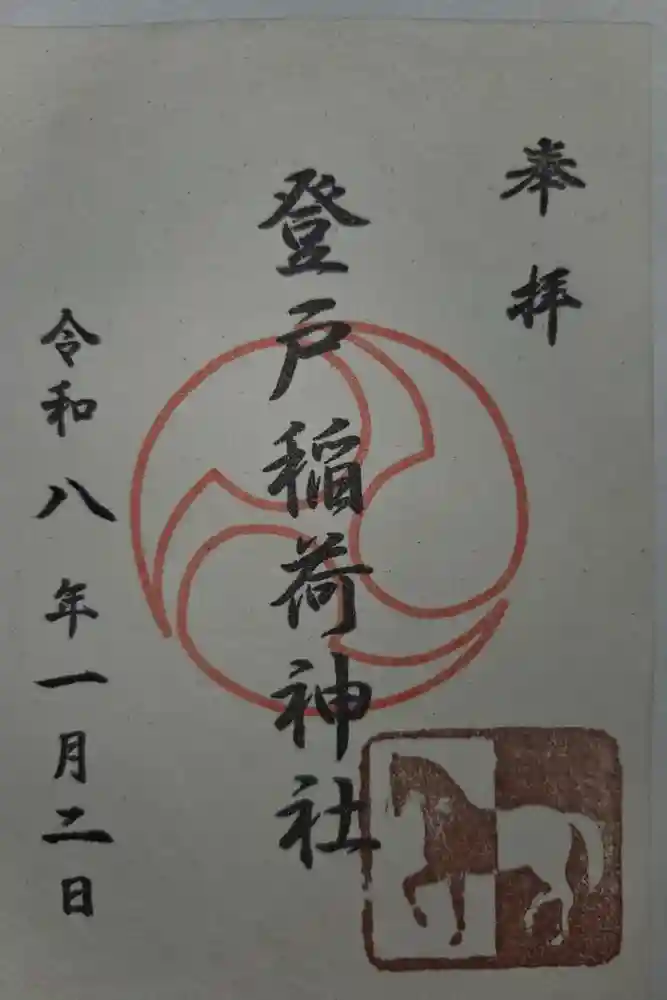 奉拝
登戸稲荷神社
令和八年一月二日